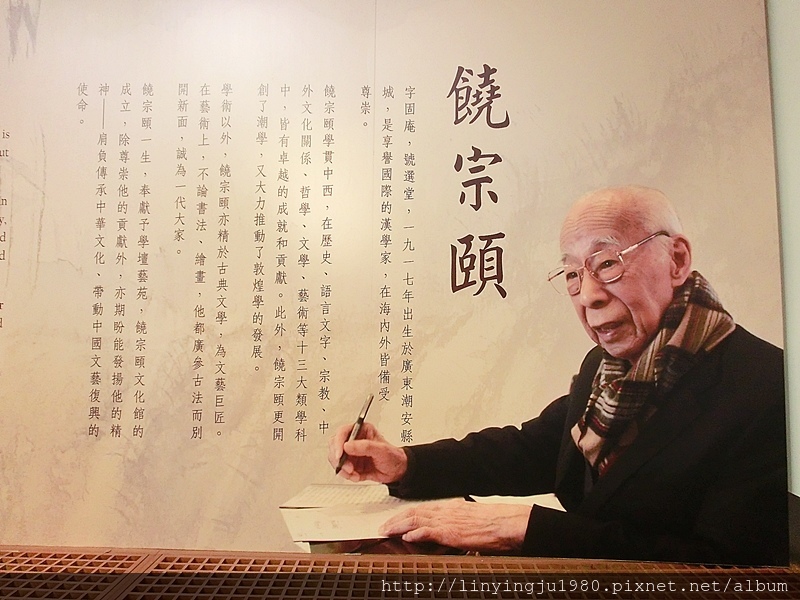 饒宗頤
字固庵，號選堂，一九一七年出生於廣東潮安縣
城，是享譽國際的漢學家，在海內外皆備受
尊崇。
饒宗頤學貫中西，在歷史、語言文字、宗教、中
外文化關係、哲學、文學、藝術等十三大類學科
中，皆有卓越的成就和貢獻。此外，饒宗頤更開
創了潮學，又大力推動了敦煌學的發展。
學術以外，饒宗頤亦精於古典文學，為文藝巨匠。
在藝術上，不論書法、繪畫，他都廣參古法而別
開新面，誠為一代大家。
饒宗頤一生，奉獻予學壇藝苑，饒宗頤文化館的
成立，除尊崇他的貢獻外，亦期盼能發揚他的精
神——肩負傳承中華文化、帶動中國文藝復興的
使命。
is
http://linyingju1980.pixnet.net/album